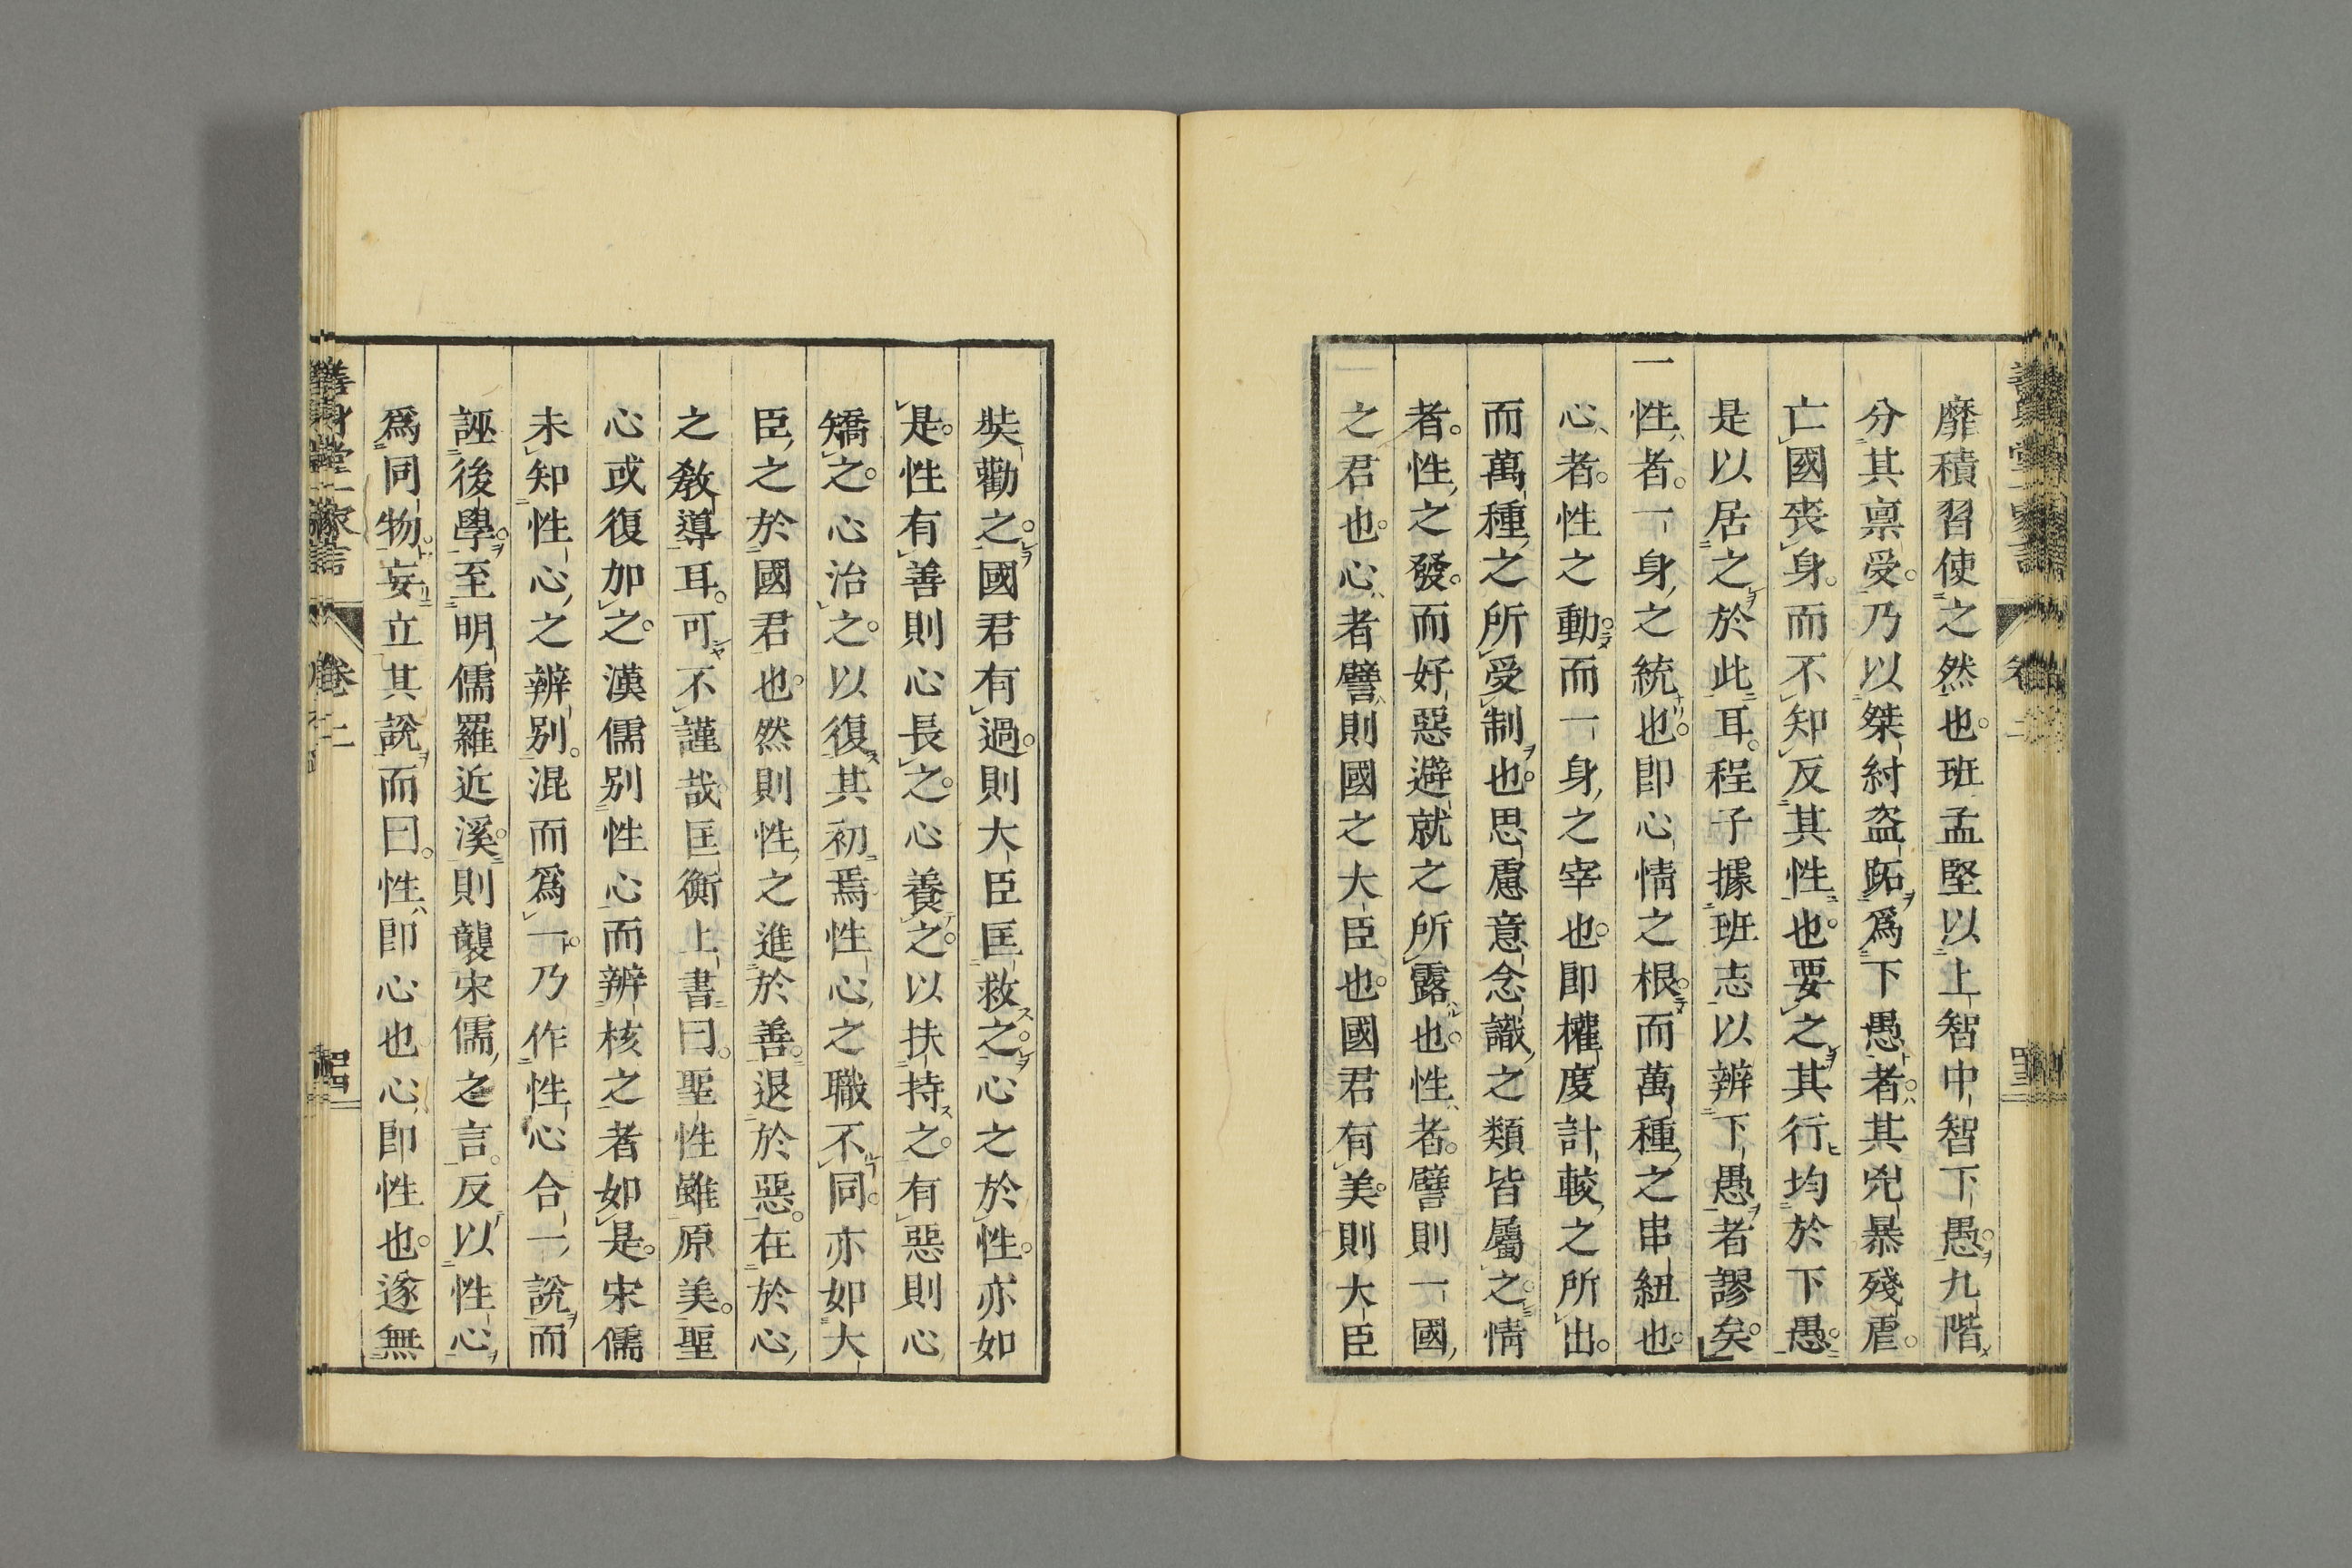 靡積習使之然也班孟堅以上智中智下愚九階
分其禀受乃以桀紂盜跖爲下愚者其兇暴殘虐
亡國喪身而不知反其性也要之其行均於下愚
是以居之於此耳程子據班志以辨下愚者謬矣
一性者一身之統也卽心情之根而萬種之串紐也
心者性之動而一身之宰也卽權度計較之所出
而萬種之所受制也思慮意念識之類皆屬之情
者性之發而好惡避就之所露也性者譬則一國
之君也心者譬則國之大臣也國君有美則大臣
奘勸之國君有過則大臣匡救之心之於性亦如
是性有善則心長之心養之以扶持之有惡則心
矯之心治之以復其初焉性心之職不同亦如大
臣之於國君也然則性之進於善退於惡在於心
之教導耳可不謹哉匡衡上書曰聖性雖原美聖
心或復加之漢儒別性心而辨核之者如是宋儒
未知性心之辨別混而爲一乃作性心合一說而
誣後學至明儒羅近溪則襲宋儒之言反以性心
爲同物妄立其說而曰性卽心也心卽性也遂無
善身堂一家言 卷二